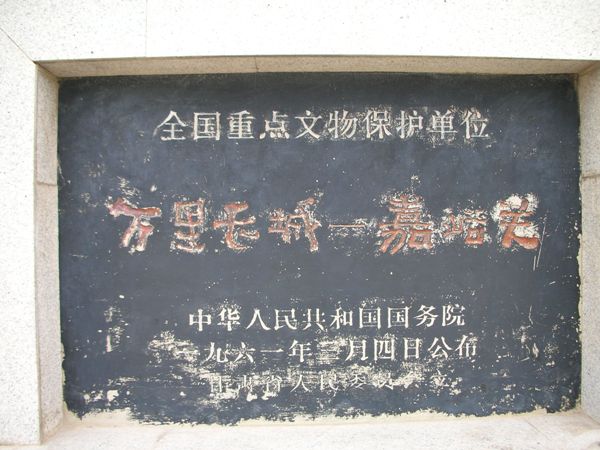 全国重点文物保护单位
万里长城—嘉峪关
中华人民共和国国务院
一九六一年三月四日公布
甘肃省人民委员会立